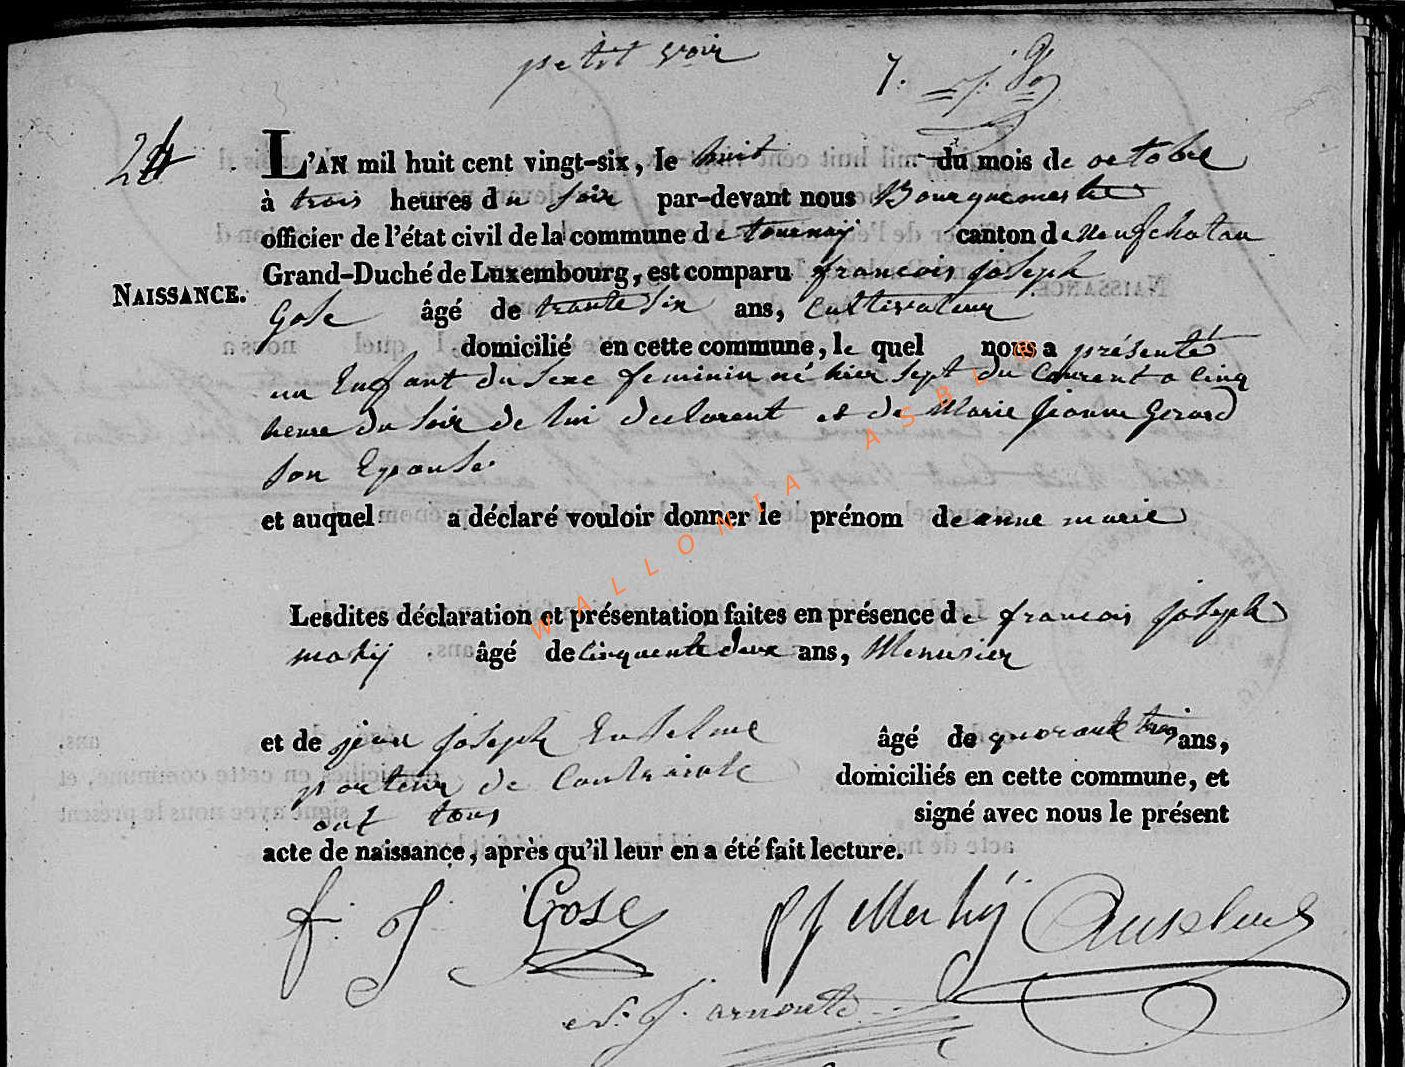 petit voir
7.
24
L'AN mil huit cent vingt-six, le huit du mois de octobre
à trois heures du soir par-devant nous Bourguemestre
officier de l'état civil de la commune de tournay canton de neufchatau
Grand-Duché de Luxembourg, est comparu francois joseph
NAISSANCE.
Gose âgé de trante six ans, Cultivateur
domicilié en cette commune, le quel nous a présenté
un Enfant du sexe feminin né hier sept du Courent a cinq
heure du soir de lui declarant et de Marie jeanne Gerard
son Epouse
et auquel a déclaré vouloir donner le prénom de anne marie
WALLONIA ASBL ©
Lesdites déclaration et présentation faites en présence de francois joseph
mahij âgé de cinquente deux ans, Menusier
et de jean joseph Enselme âgé de quarante trois ans,
porteur de Contrainte domiciliés en cette commune, et
ont tous signé avec nous le présent
acte de naissance, après qu'il leur en a été fait lecture.
f. J. Gose fj Mahij Anselme
J. arnould